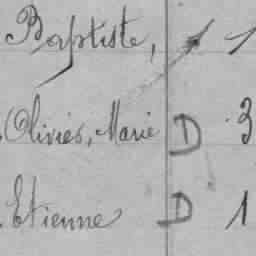 Baptiste, 1
Olivier, Marie D 3
Etienne D 1